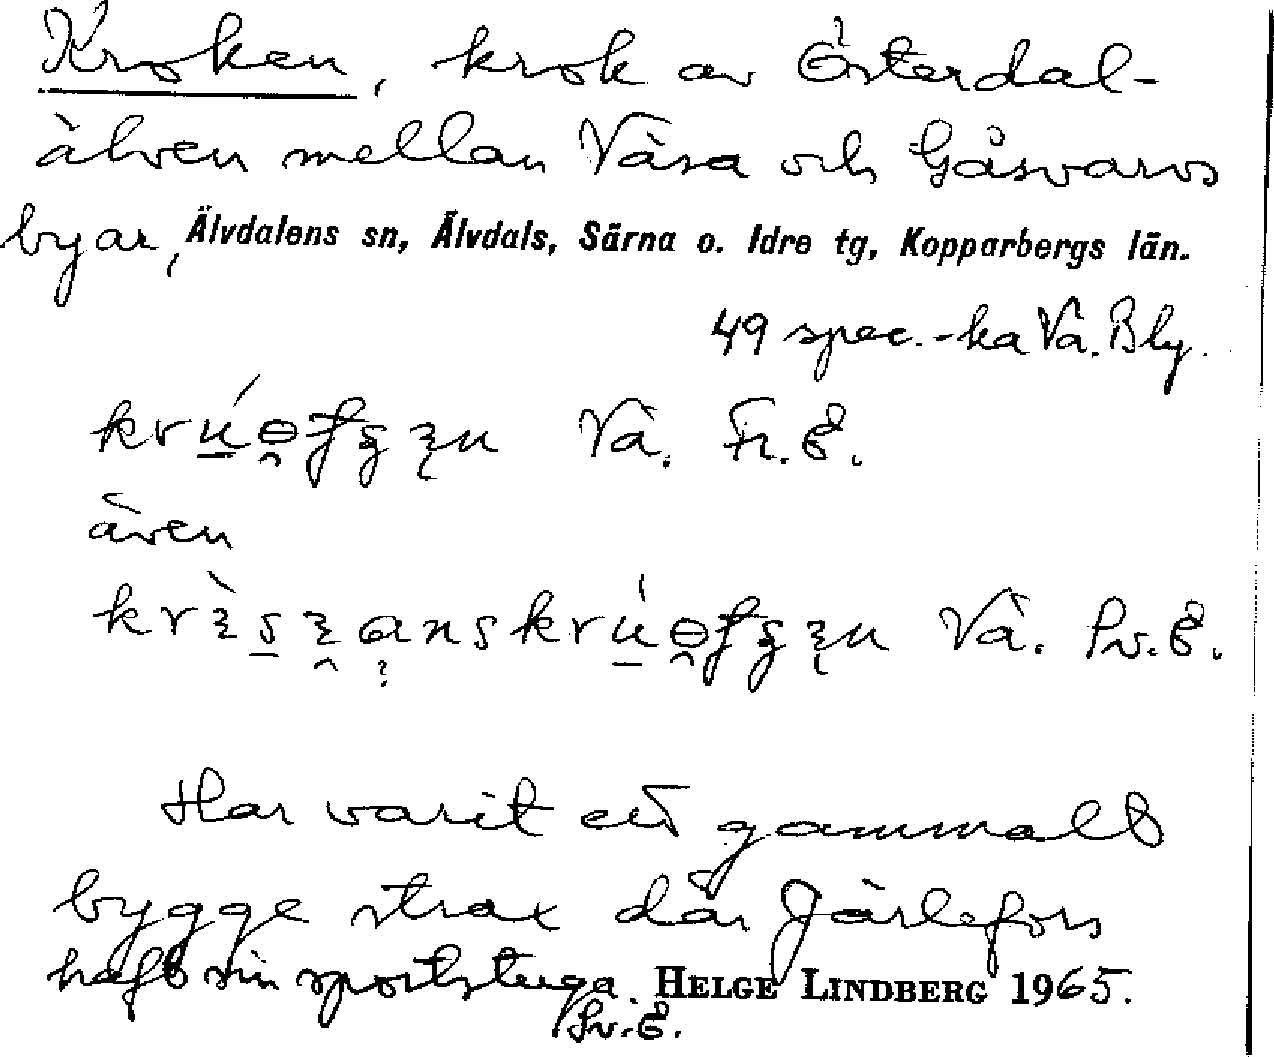 Kroken, krok av Österdal-
älven mellan Våsa och Gåsvarvs
byar, Älvdalens sn, Älvdals, Särna o. Idre tg, Kopparbergs län.
49 spec.-ka Vå. Bly.
Vå. Fr. E.
även
Vå. Sv. E.
Har varit ett gammalt
bygge strax där Järlefors
haft sin sportstuga. HELGE LINDBERG 1965.
Sv. E.